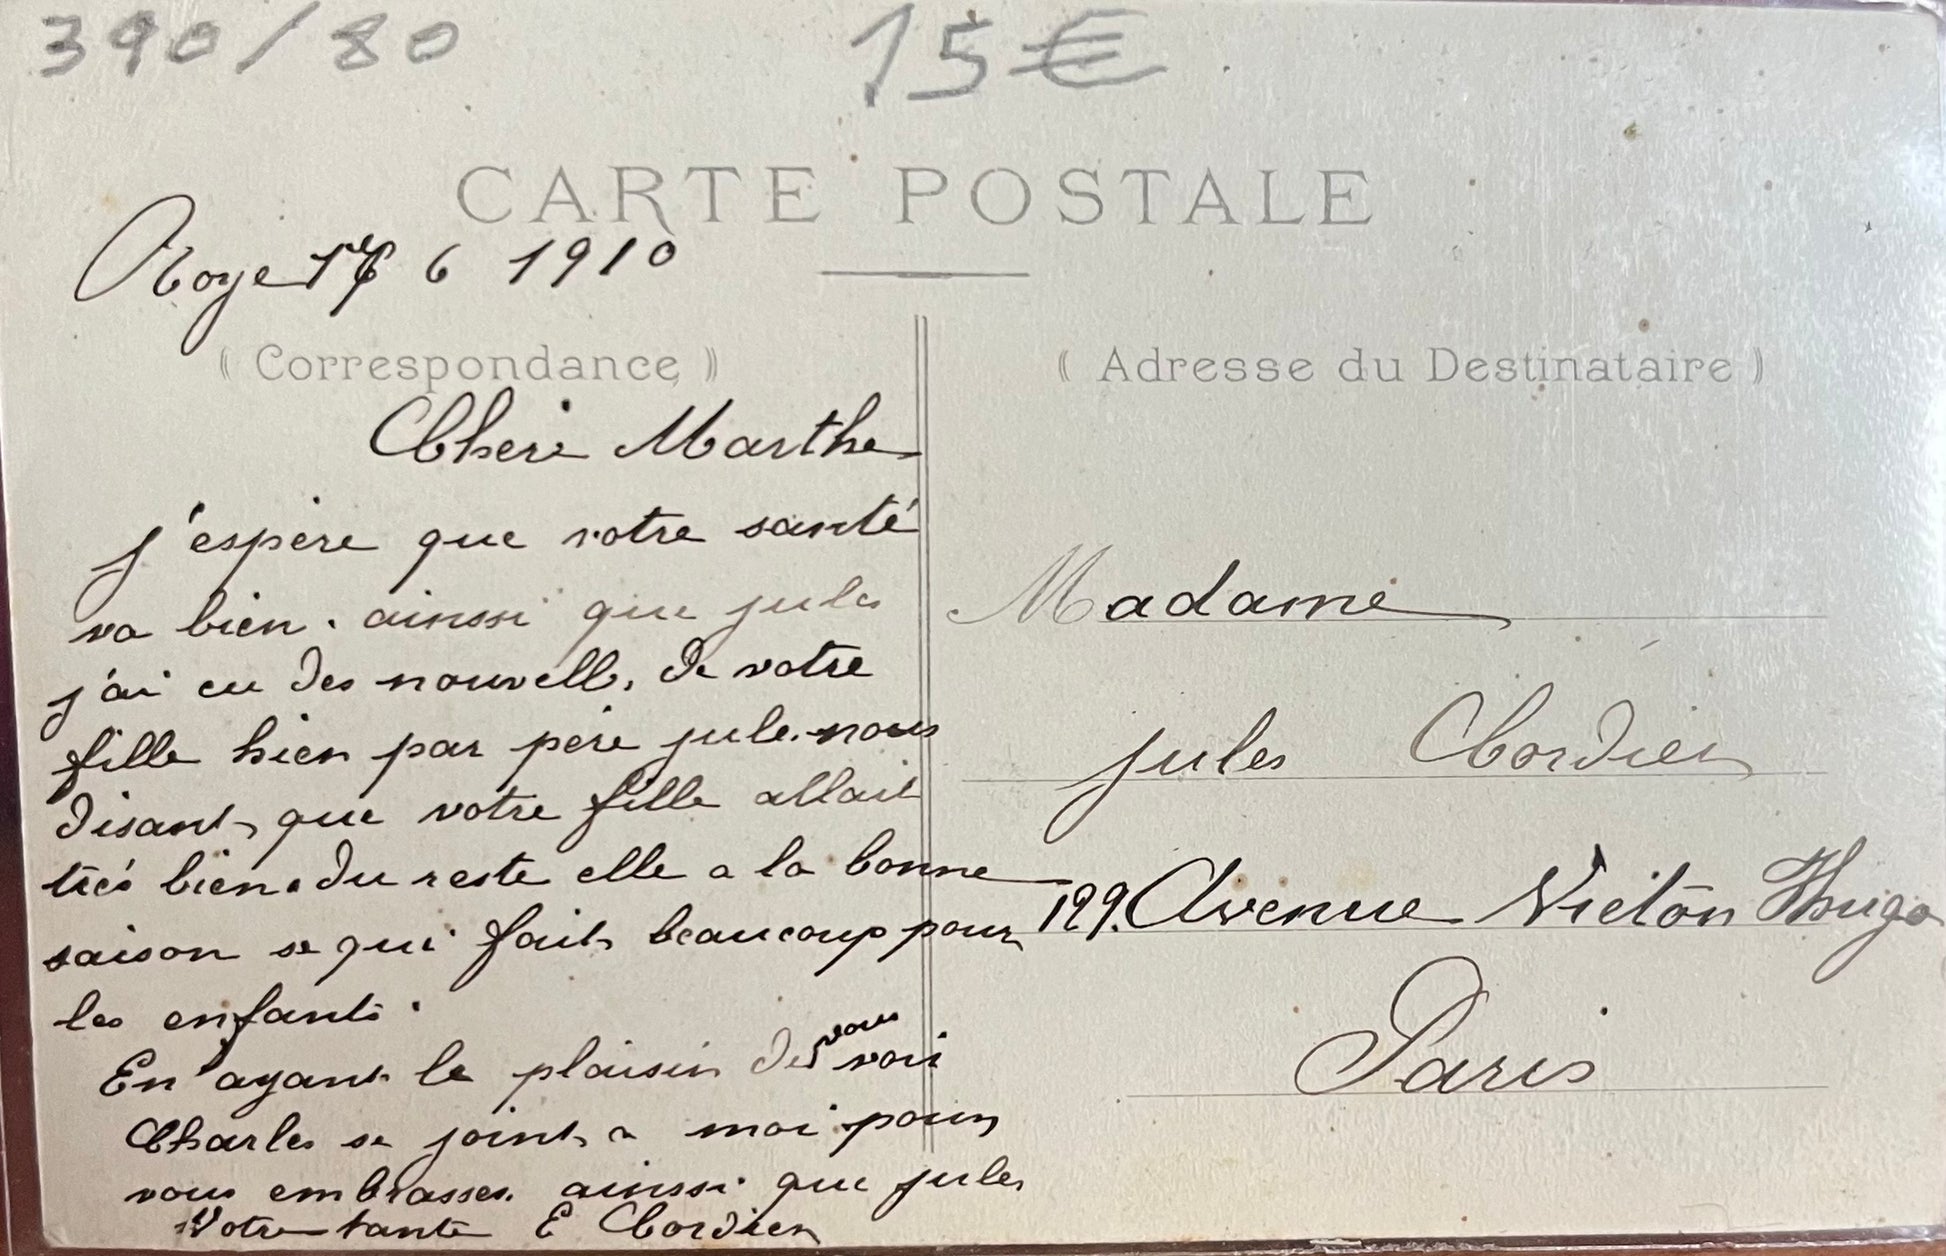 390/80
15€
CARTE POSTALE
Roye 6 1910
( Correspondance )
Chere Marthe
j'espere que votre santé
va bien. ainssi que jules
j'ai eu des nouvell. de votre
fille bien par pere jule. nous
disant que votre fille allait
tres bien. du reste elle a la bonne
saison se qui fait beaucoup pour
les enfants.
En ayant le plaisir de vous voir
Charles se joint a moi pour
vous embrasses. ainssi que jules
Votre tante E Cordier
( Adresse du Destinataire )
Madame
jules Cordier
199. Avenue Victor Hugo
Paris